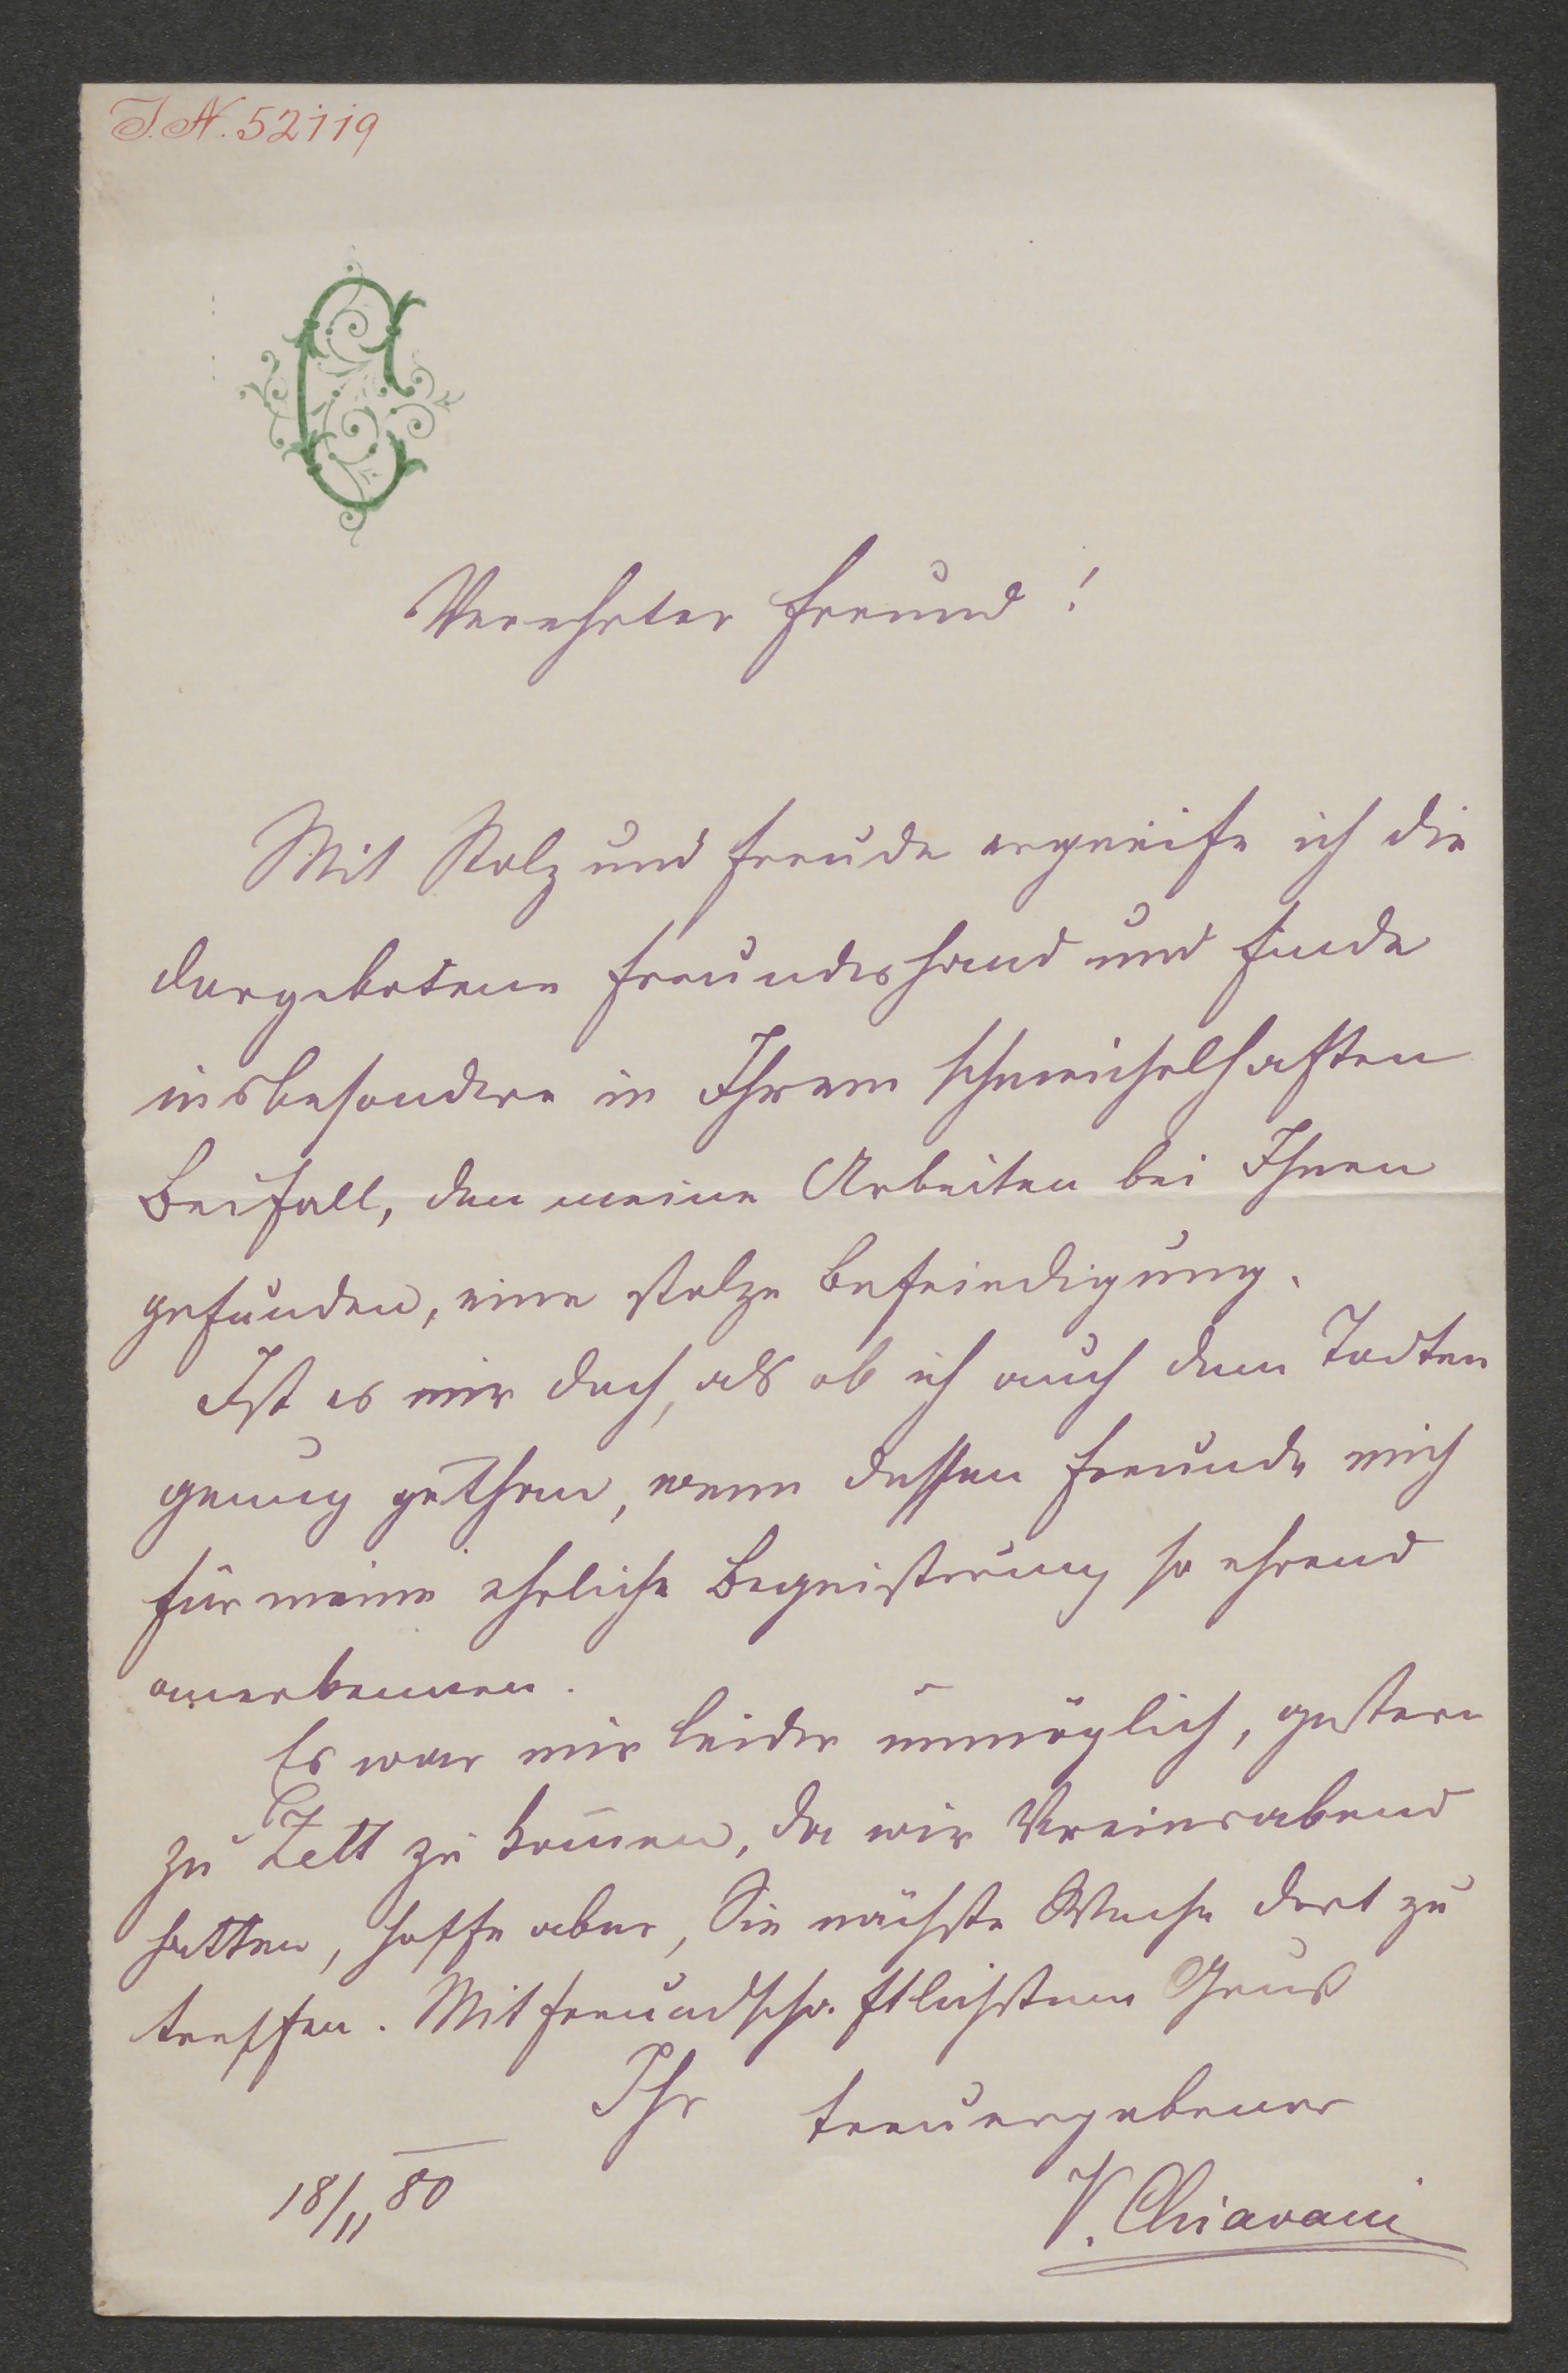 I.N. 52119
C
Verehrter Freund!
Mit Stolz und Freude ergreife ich die
dargebotene Freundeshand und finde
insbesondere in Ihrem schmeichelhaften
Beifall, den meine Arbeiten bei Ihnen
gefunden, eine stolze Befriedigung.
Ist es mir doch, als ob ich auch dem Todten
genug gethan, wenn dessen Freunde mich
für meine ehrliche Begeisterung so ehrend
anerkennen.
Es war mir leider unmöglich, gestern
zu Zett zu kom̄en, da wir Vereinsabend
hatten, hoffe aber, Sie nächste Woche dort zu
treffen. Mit freundschaftlichstem Gruß
Ihr treuergebener
18/11 80
V. Chiavacci